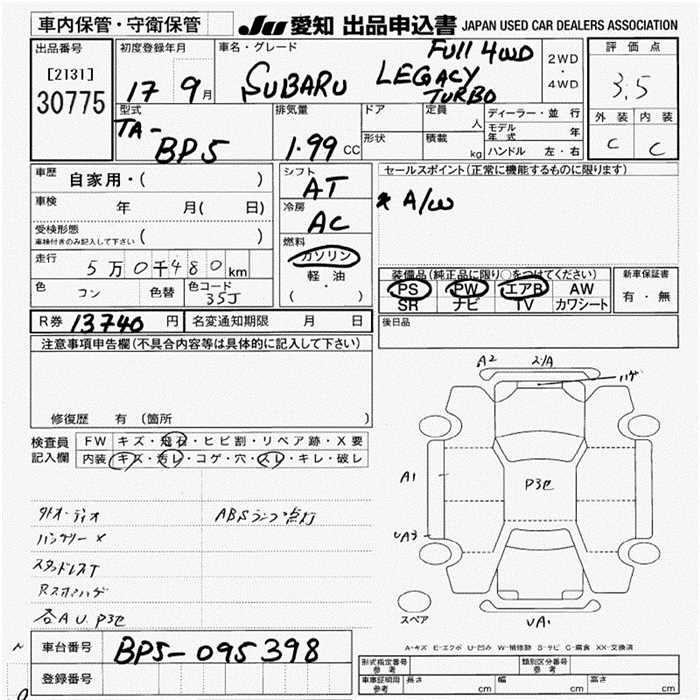 車内保管・守衛保管
JU 愛知 出品申込書 JAPAN USED CAR DEALERS ASSOCIATION
出品番号
[2131]
30775
初度登録年月
17 9月
車名・グレード
SUBARU LEGACY
FULL 4WD
TURBO
2WD
・
4WD
評価点
3.5
外装 内装
C C
型式
TA-
BP5
排気量
1.99 CC
ドア
形状
定員
人
積載
kg
ディーラー・並行
モデル年式 年
ハンドル 左・右
車歴
自家用・( )
車検 年 月( 日)
受検形態
車検付きのみ記入して下さい ( )
走行
5万0千480km
色 コン 色替 色コード
35J
シフト
AT
冷房
AC
燃料
ガソリン
軽・油
( )
セールスポイント(正常に機能するものに限ります)
* A/W
装備品(純正品に限り○をつけてください)
PS PW エアB AW
SR ナビ TV カワシート
新車保証書
有・無
R券 13740 円 名変通知期限 月 日
後日品
注意事項申告欄(不具合内容等は具体的に記入して下さい)
修復歴 有 (箇所 )
検査員記入欄
FW キズ・飛石・ヒビ割・リペア跡・X要
内装 キズ・汚レ・コゲ・穴・スレ・キレ・破レ
外オーディオ
ABSランプ点灯
バッテリー×
スタッドレスT
各AU P3セ
A2
ハゲ
A1
P3セ
UA3
UA1
スペア
A-キズ E-エクボ U-凹み W-補修跡 S-サビ C-腐食 XX-交換済
車台番号 BP5-095398
登録番号
型式指定番号
参考
類別区分番号
参考
車庫証明用
参考
長さ cm 幅 cm 高さ cm